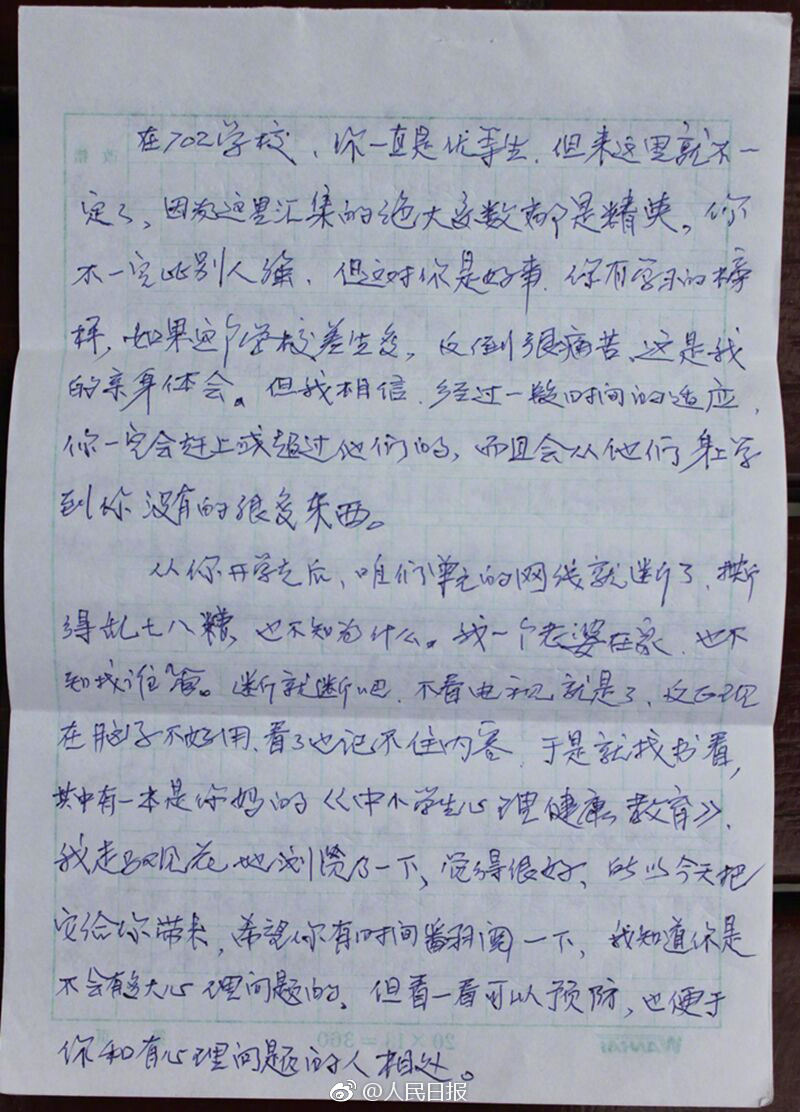 在702学校，你一直是优等生，但来这里就不一
定了，因为这里汇集的绝大多数都是精英。你
不一定比别人强，但这对你是好事，你有学习的榜
样，如果这个学校差生多，反倒很痛苦，这是我
的亲身体会。但我相信，经过一段时间的适应，
你一定会赶上或超过他们的，而且会从他们身上学
到你没有的很多东西。
从你开学走后，咱们单元的网线就断了，断
得乱七八糟，也不知为什么。我一个老婆在家，也不
知找谁管。断就断吧，不看电视就是了，反正现
在脑子不好用，看了也记不住内容，于是就找书看，
其中有一本是你妈的《中小学生心理健康教育》，
我走马观花地浏览了一下，觉得很好，所以今天把
它给你带来，希望你有时间翻阅一下，我知道你是
不会有多大心理问题的，但看一看可以预防，也便于
你和有心理问题的人相处。
20×18=360
@人民日报